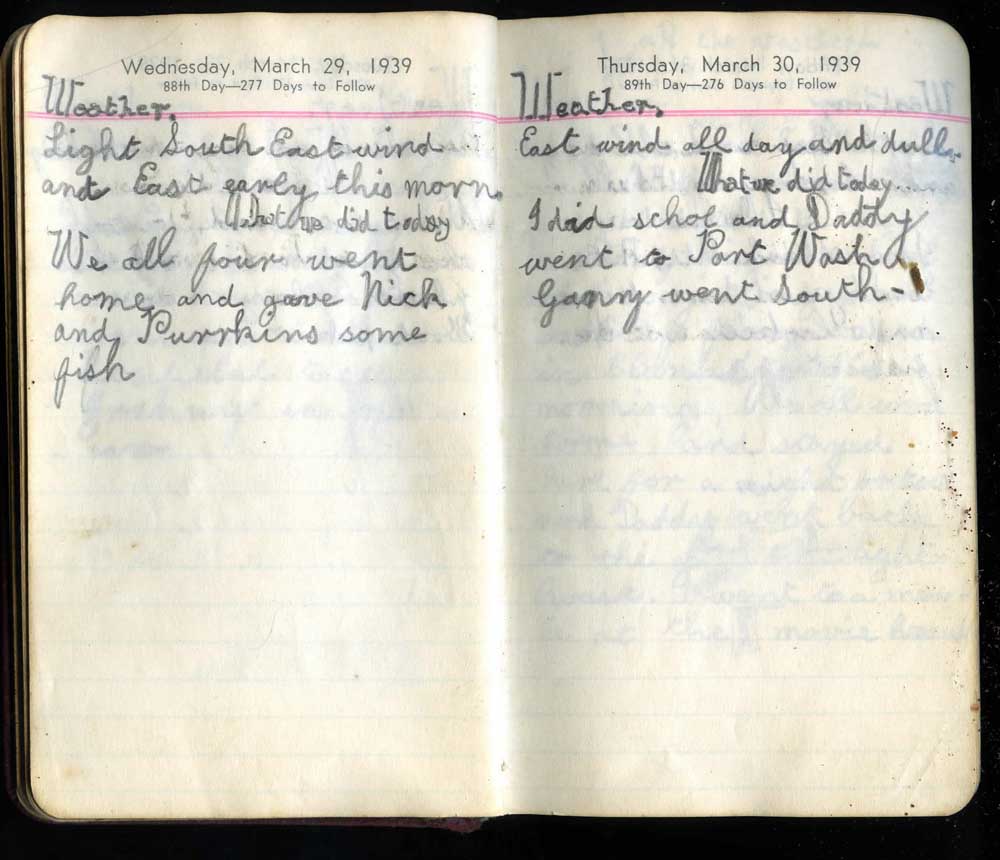 Wednesday, March 29, 1939
88th Day—277 Days to Follow
Weather.
Light South East wind
and East early this morn.
What we did today
We all four went
home and gave Nick
and Purrkins some
fish
Thursday, March 30, 1939
89th Day—276 Days to Follow
Weather.
East wind all day and dull.
What we did today.
I did schol and Daddy
went to Port Wash
Ganny went South-